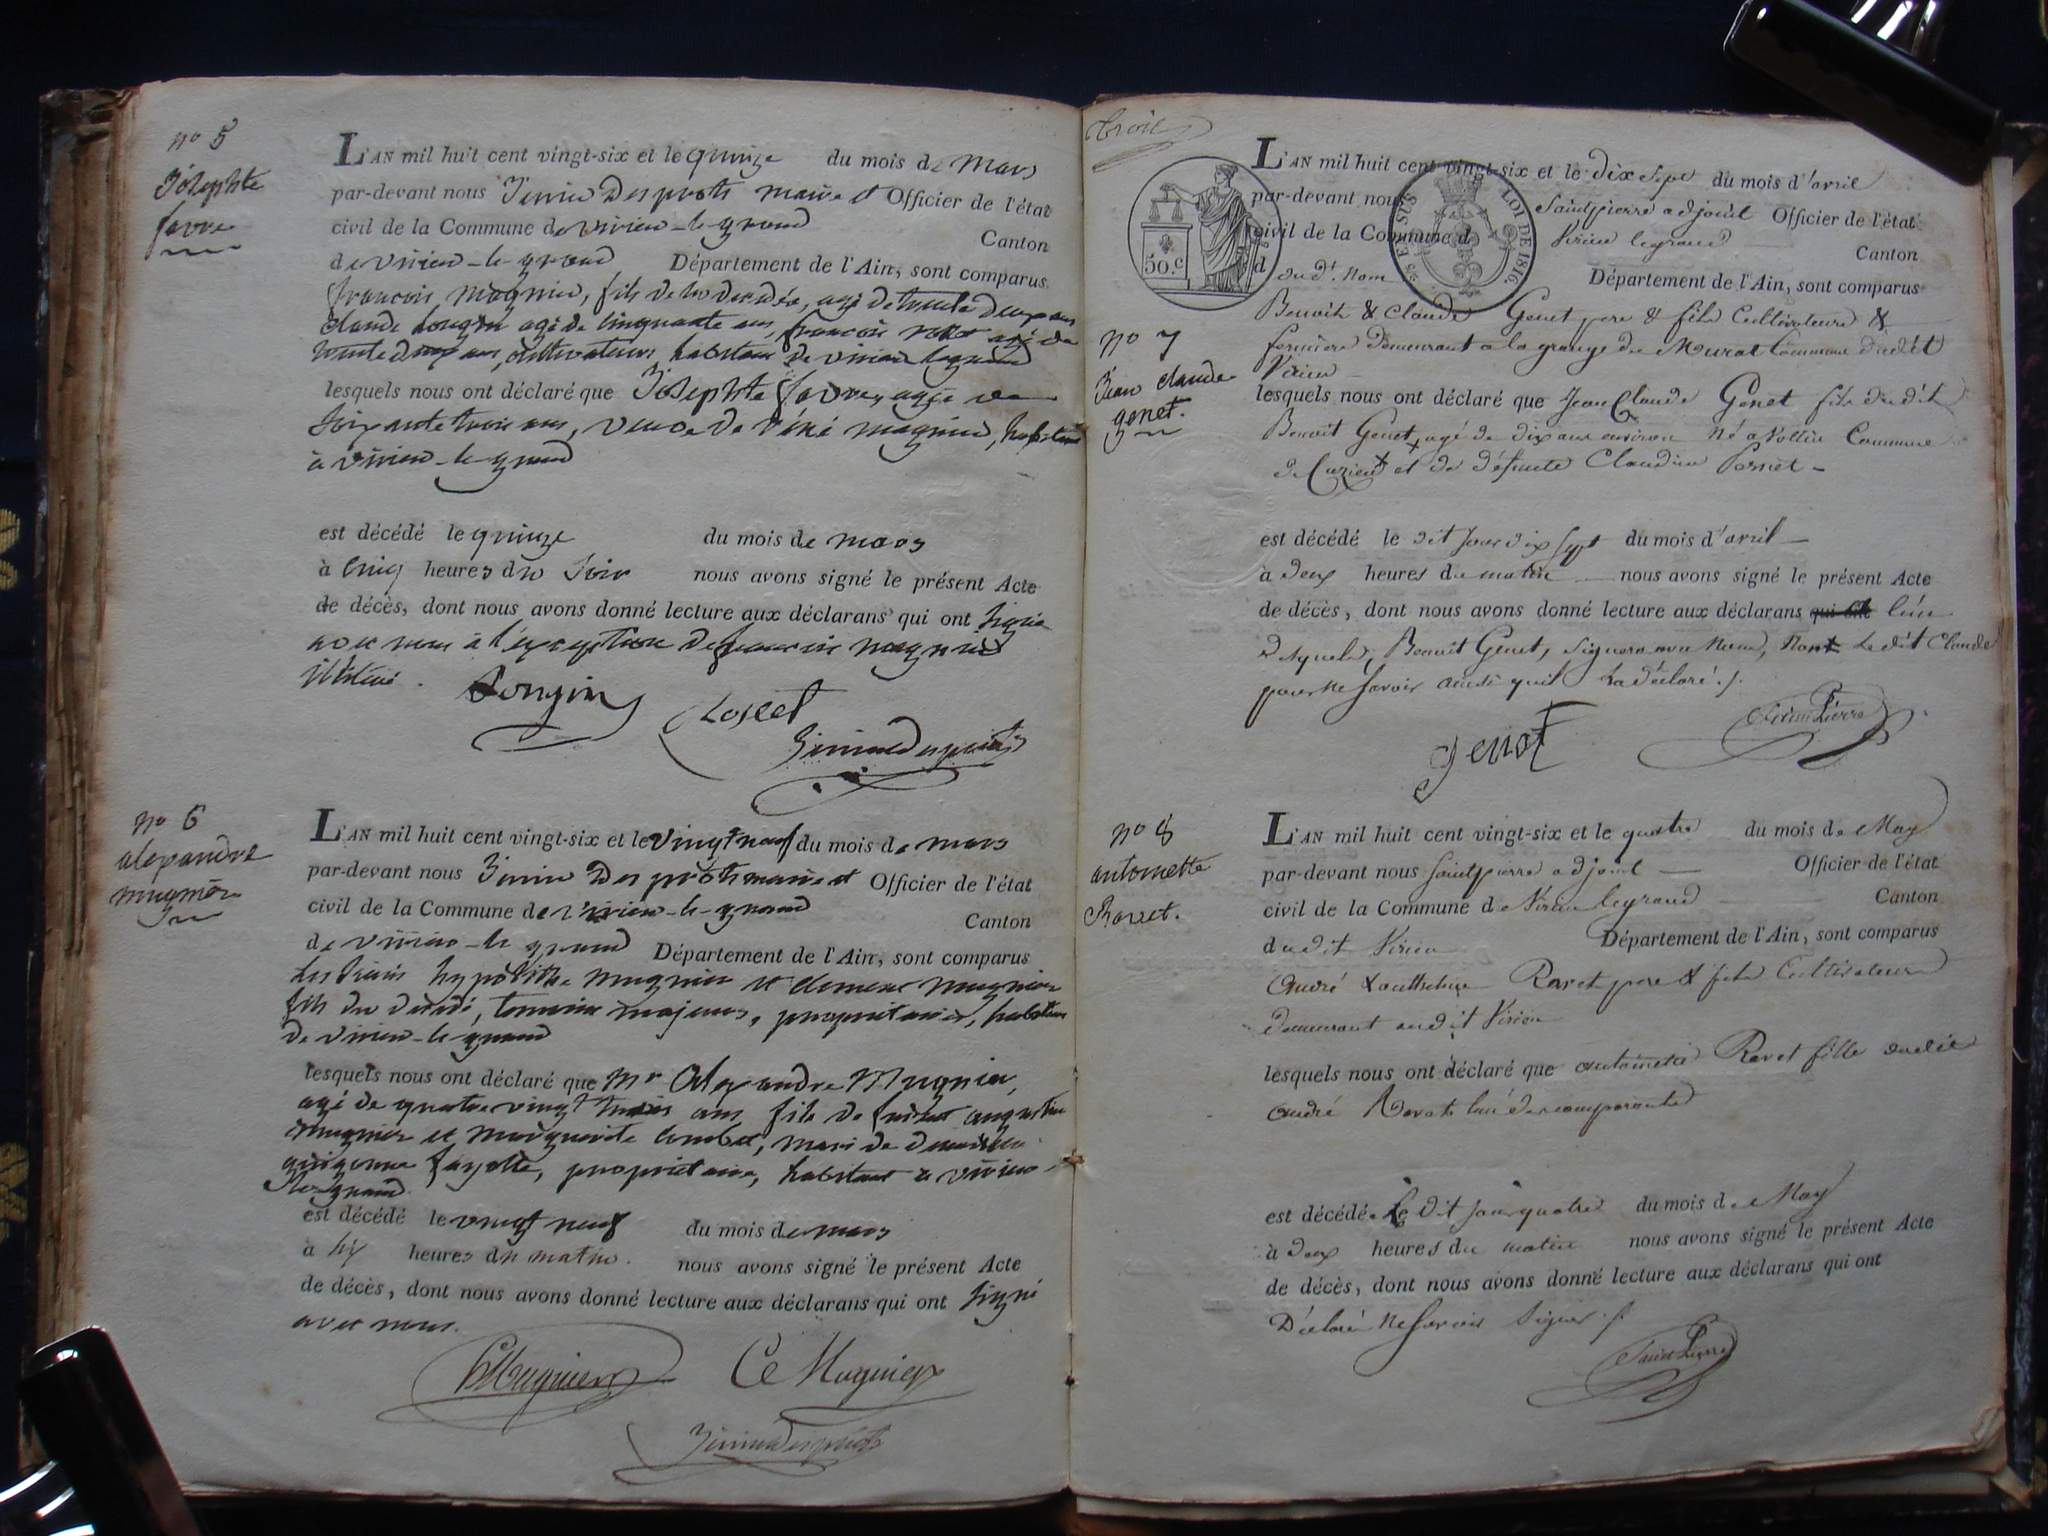 no 5
Josephte
favre
L'AN mil huit cent vingt-six et le quinze du mois de mars
par-devant nous maire et Officier de l'état
civil de la Commune de virieu-le-grand
Canton
de virieu-le-grand Département de l'Ain, sont comparus
françois magnin, fils de la décédée, agé de trente deux ans
claude agé de cinquante ans, françois agé de
trente deux ans, cultivateurs, habitans de virieu legrand
lesquels nous ont déclaré que Josephte favre, agée de
soixante trois ans, veuve de magnin, habitant
à virieu-le-grand
est décédé le quinze du mois de mars
à cinq heures du soir nous avons signé le présent Acte
de décès, dont nous avons donné lecture aux déclarans qui ont signé
avec nous à l'exception de françois magnin
illitéré.
no 6
alexandre
mugnier
L'AN mil huit cent vingt-six et le vingt neuf du mois de mars
par-devant nous maire et Officier de l'état
civil de la Commune de virieu-le-grand
Canton
de virieu-le grand Département de l'Ain, sont comparus
les hypolithe mugnier et clement mugnier
fils du décédé, majeurs, propriétaires, habitans
de virieu-le-grand
lesquels nous ont déclaré que Mr Alexandre Mugnier,
agé de quatre vingt trois ans fils de augustin
mugnier et marguerite mari de
fayolle, propriétaire, habitant à virieu-
le grand.
est décédé le vingt neuf du mois de mars
à six heures du matin. nous avons signé le présent Acte
de décès, dont nous avons donné lecture aux déclarans qui ont signé
avec nous.
Mugnier Ce Mugnier
trois
50.c
LOI DE 1816.
L'AN mil huit cent vingt-six et le dix sept du mois d'avril
par-devant nous Saintpierre adjoint Officier de l'état
civil de la Commune d Virieu legrand
Canton
d du dt. nom Département de l'Ain, sont comparus
no 7
Jean claude
genet.
Benoit & Claude Genet pere & fils Cultivateurs &
fermiers demeurant a la grange de Murat Commune dudit
Virieu
lesquels nous ont déclaré que Jean Claude Genet fils dudit
Benoit Genet, agé de dix ans environ né a Commune
de et de défunte Claudine
est décédé le dit Jour dix sept du mois d'avril
à deux heures du matin nous avons signé le présent Acte
de décès, dont nous avons donné lecture aux déclarans qui ont l'un
desquels, Benoit Genet, signera avec Nous, Non le dit Claude
pour ne savoir ainsi quil la déclaré ./.
genet SaintPierre
no 8
antoinette
Ravet.
L'AN mil huit cent vingt-six et le quatre du mois de May
par-devant nous Saintpierre adjoint Officier de l'état
civil de la Commune d Virieu legrand Canton
dudit Virieu Département de l'Ain, sont comparus
André & Ravet pere & fils Cultivateurs
demeurant audit Virieu
lesquels nous ont déclaré que antoinette Ravet fille dudit
André Ravet l'un des comparants
est décédé Le dit Jour quatre du mois de May
à deux heures du matin nous avons signé le présent Acte
de décès, dont nous avons donné lecture aux déclarans qui ont
Déclaré ne savoir signer ./.
SaintPierre